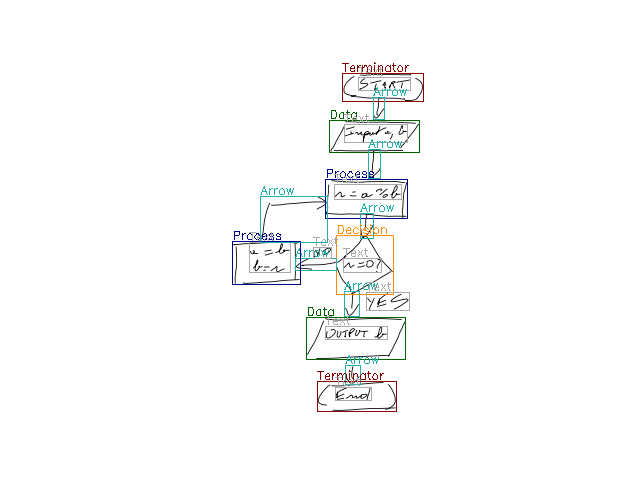 Terminator
START
Arrow
Data
Text
Input a, b
Arrow
Process
r = a % b
Arrow
Arrow
Decision
Process
Text
a = b
b = r
Text
NO
Arrow
Text
r = 0?
Arrow
Text
YES
Data
Text
OUTPUT b
Arrow
Terminator
End